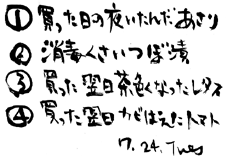 ① 買った日の夜いたんだあさり
② 消毒くさいつぼ漬
③ 買った翌日茶色くなったレタス
④ 買った翌日カビはえたトマト
7. 24. Tues